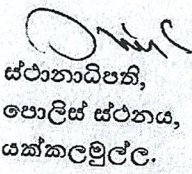 ස්ථානාධිපති,
පොලිස් ස්ථනය,
යක්කලමුල්ල.